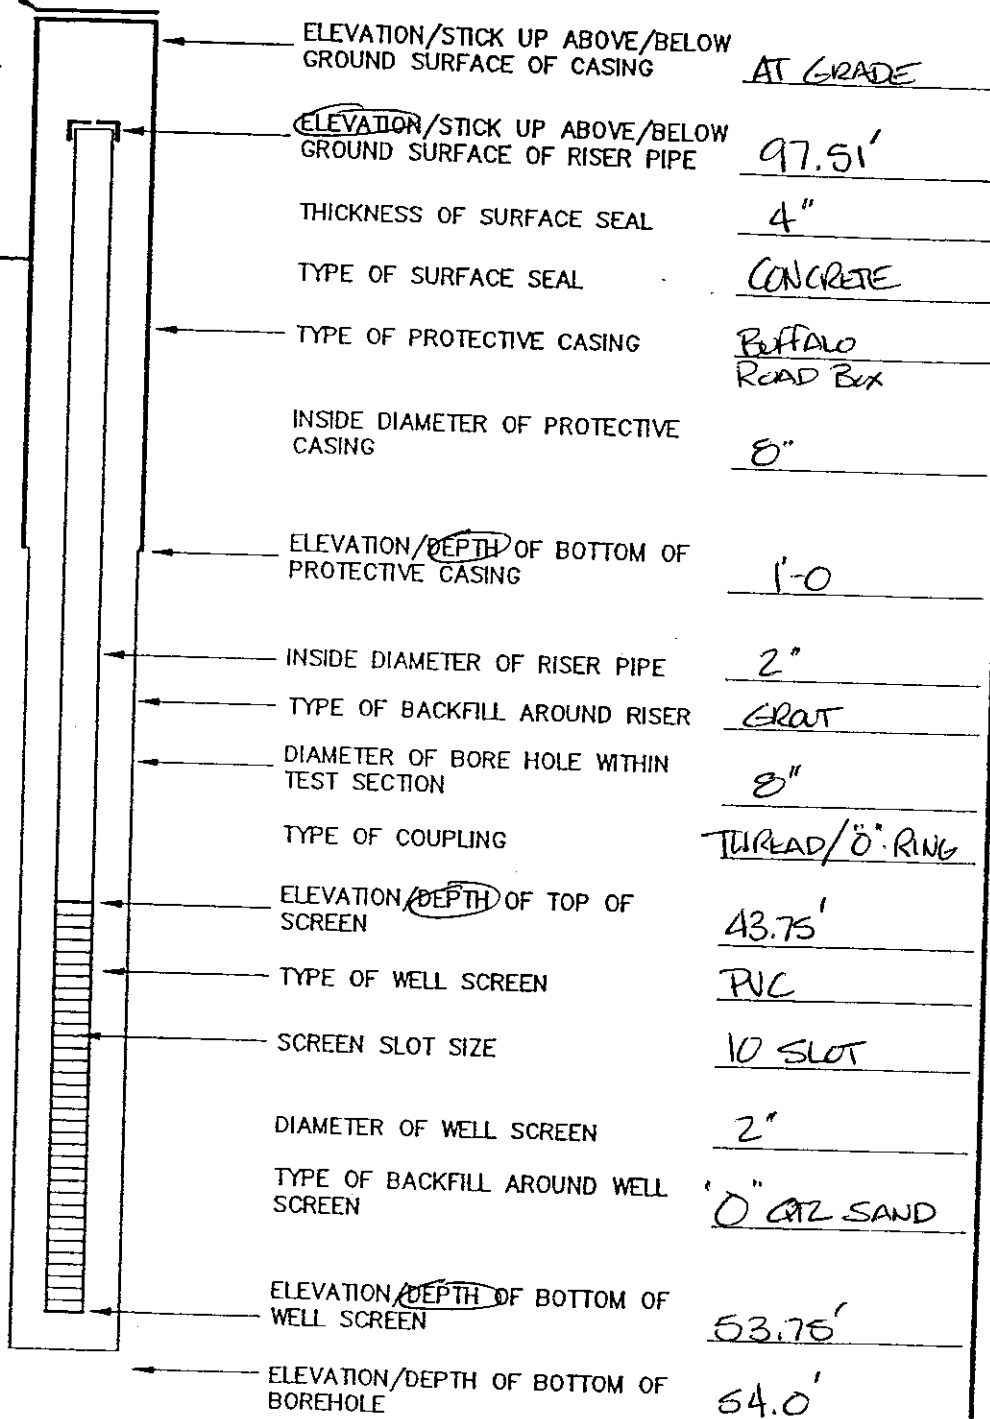 ELEVATION/STICK UP ABOVE/BELOW
GROUND SURFACE OF CASING AT GRADE
ELEVATION/STICK UP ABOVE/BELOW
GROUND SURFACE OF RISER PIPE 97.51'
THICKNESS OF SURFACE SEAL 4"
TYPE OF SURFACE SEAL CONCRETE
TYPE OF PROTECTIVE CASING BUFFALO
ROAD BOX
INSIDE DIAMETER OF PROTECTIVE
CASING 8"
ELEVATION/DEPTH OF BOTTOM OF
PROTECTIVE CASING 1'-0
INSIDE DIAMETER OF RISER PIPE 2"
TYPE OF BACKFILL AROUND RISER GROUT
DIAMETER OF BORE HOLE WITHIN
TEST SECTION 8"
TYPE OF COUPLING THREAD/"O" RING
ELEVATION/DEPTH OF TOP OF
SCREEN 43.75'
TYPE OF WELL SCREEN PVC
SCREEN SLOT SIZE 10 SLOT
DIAMETER OF WELL SCREEN 2"
TYPE OF BACKFILL AROUND WELL
SCREEN "0" QTZ SAND
ELEVATION/DEPTH OF BOTTOM OF
WELL SCREEN 53.75'
ELEVATION/DEPTH OF BOTTOM OF
BOREHOLE 54.0'